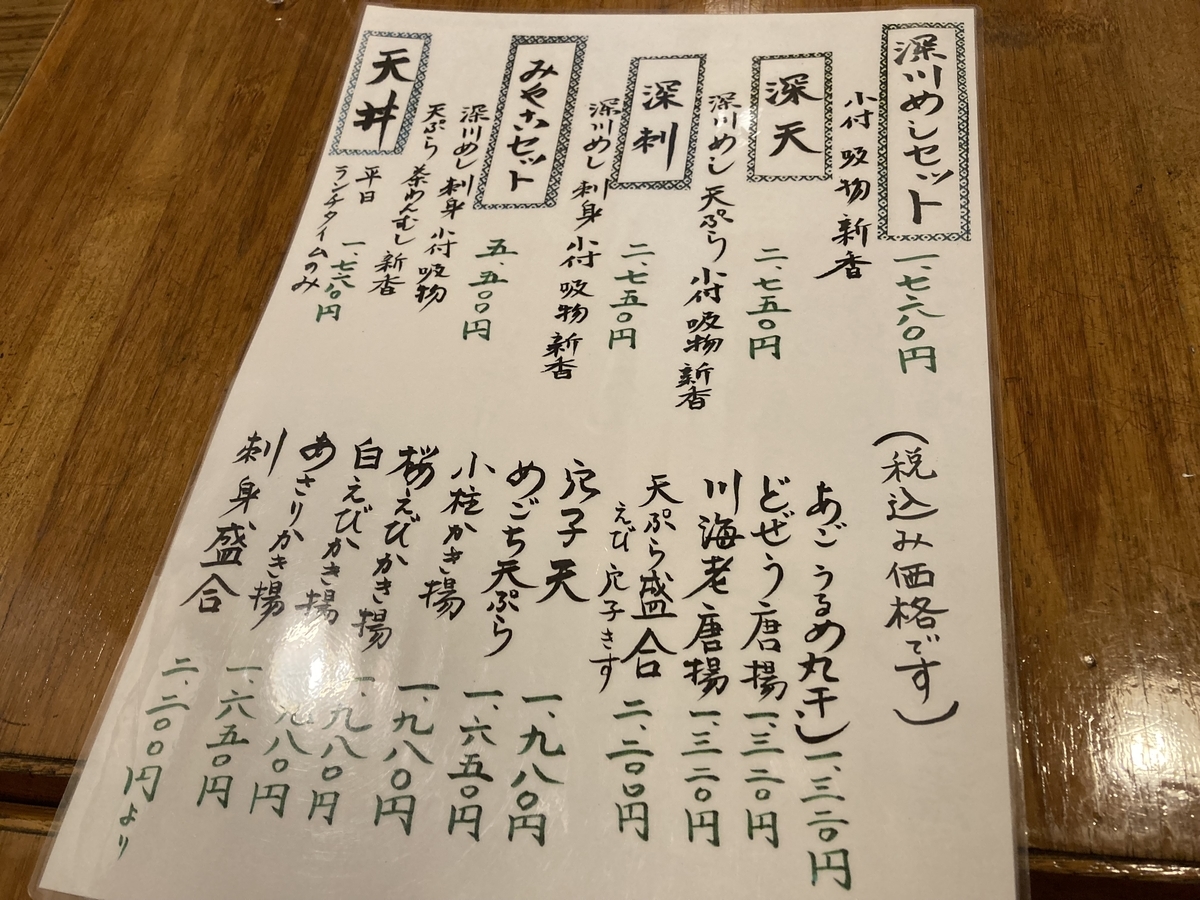 深川めしセット
一、七六〇円
小付 吸物 新香
深天
二、七五〇円
深川めし 天ぷら 小付 吸物 新香
深刺
二、七五〇円
深川めし 刺身 小付 吸物 新香
みやこセット
五、五〇〇円
深川めし 刺身 小付 吸物
天ぷら 茶わんむし 新香
天丼
一、七六〇円
平日
ランチタイムのみ
（税込み価格です）
あごうるめ丸干し 一、三二〇円
どぜう唐揚 一、三二〇円
川海老唐揚 一、三二〇円
天ぷら盛合 二、二〇〇円
えび 穴子きす
穴子天 一、九八〇円
めごち天ぷら 一、六五〇円
小柱かき揚 一、九八〇円
桜えびかき揚 一、九八〇円
白えびかき揚 一、九八〇円
あさりかき揚 一、六五〇円
刺身盛合 二、二〇〇円より